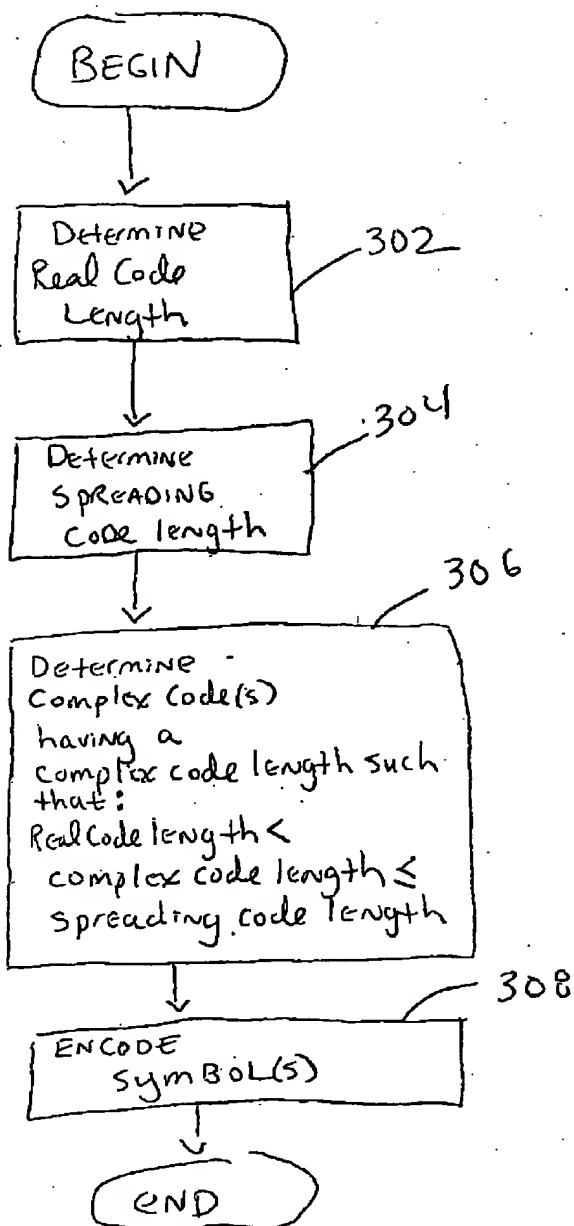 BEGIN
Determine
Real Code
Length
302
Determine
SPREADING
code length
304
Determine
Complex Code(s)
having a
complex code length such
that:
Real Code length <
complex code length ≤
spreading code length
306
ENCODE
SymBOL(S)
308
END